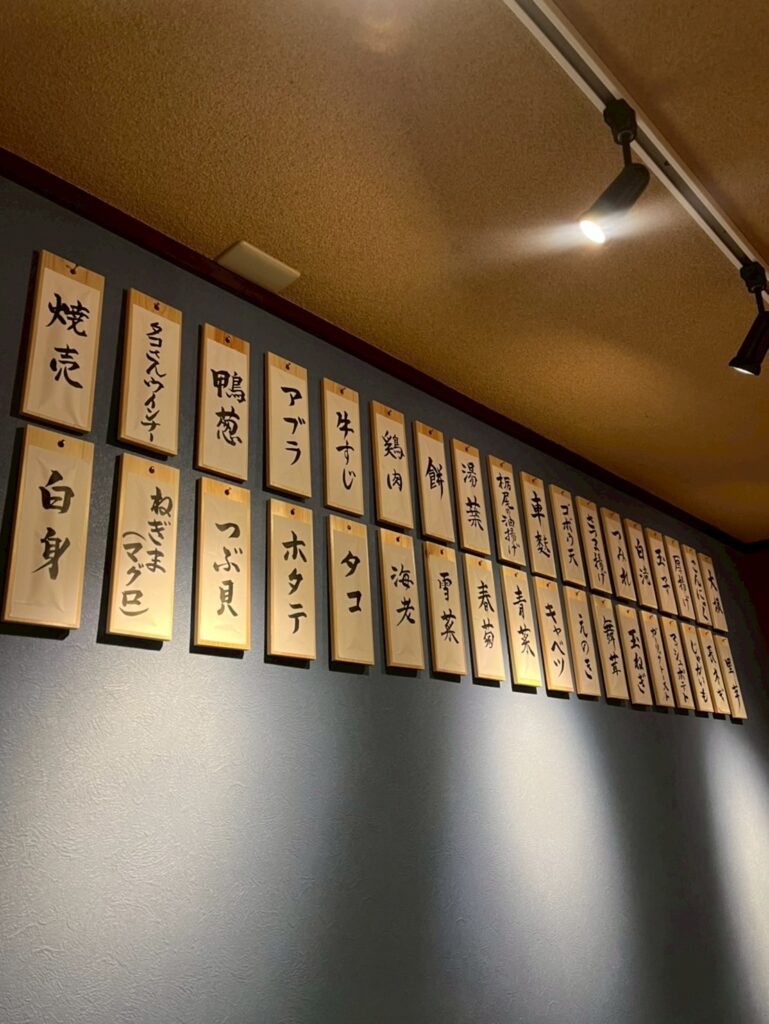 大根
こんにゃく
厚揚げ
玉子
白滝
つみれ
さつま揚げ
ゴボウ天
車麩
栃尾の油揚げ
湯葉
餅
鶏肉
牛すじ
アブラ
鴨葱
タコさんウインナー
焼売
里芋
長ネギ
じゃがいも
マッシュポテト
玉ねぎ
舞茸
えのき
キャベツ
青菜
春菊
雪菜
海老
タコ
ホタテ
つぶ貝
ねぎま
（マグロ）
白身